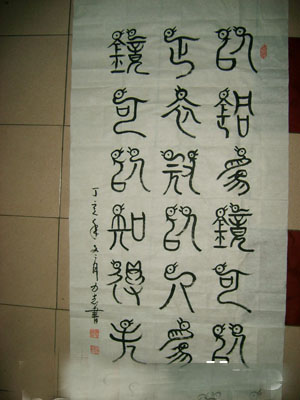 以銅為鏡可以
正衣冠以人為
鏡可以知得失
丁亥年
書